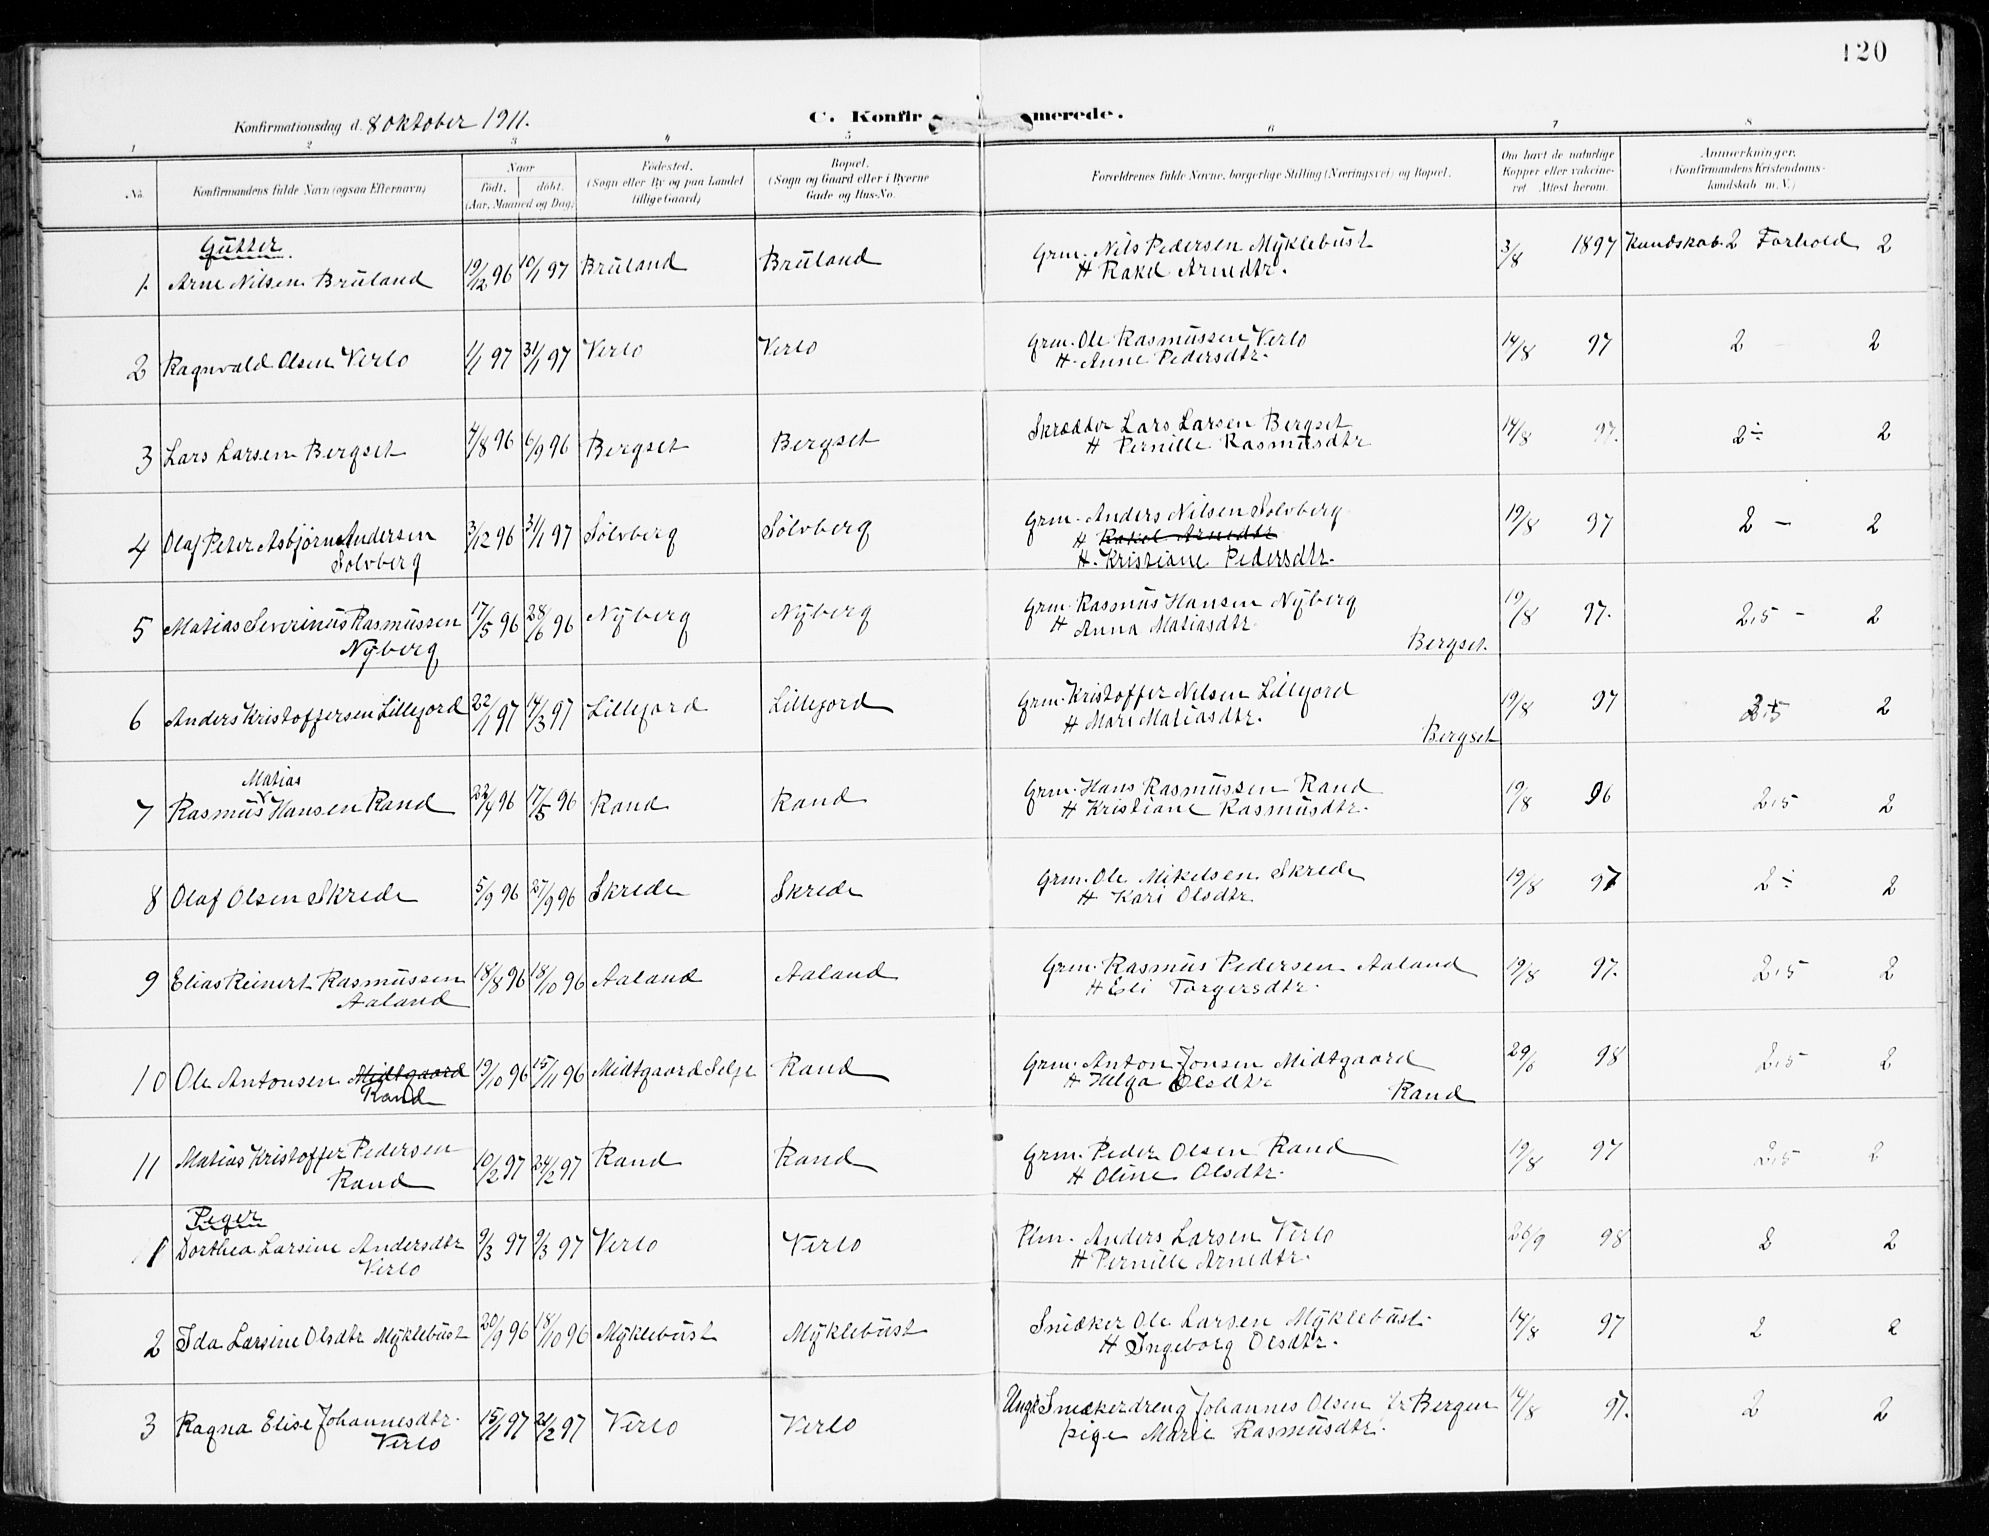 120
Konfirmationsdag d. 8 oktober 1911.
C. Konfirmerede.
1 2 3 4 5 6 7 8
No. Konfirmandens fulde Navn (ogsaa Efternavn) Naar født. døbt. (Aar, Maaned og Dag) Fødested. (Sogn eller By og paa Landet tillige Gaard) Bopæl. (Sogn og Gaard eller i Byerne Gade og Hus-No. Forældrenes fulde Navne, borgerlige Stilling (Næringsvei) og Bopæl. Om havt de naturlige Kopper eller vakcineret Attest herom. Anmærkninger. (Konfirmandens Kristendomskundskab m. V.)
Gutter.
1. Arne Nilsen Bruland 19/12 96 10/1 97 Bruland Bruland Grm. Nils Pedersen Myklebust 3/8 1897 Kundskab 2 Forhold 2
H Rakel Arnedtr.
2 Ragnvald Olsen Verlo 1/1 97 31/1 97 Verlo Verlo Grm. Ole Rasmussen Verlo 14/8 97 2 2
H. Anne Pedersdtr.
3 Lars Larsen Bergset 4/8 96 6/9 96 Bergset Bergset Skrædder Lars Larsen Bergset 14/8 97. 2÷ 2
H Pernille Rasmusdtr
4 Olaf Peter Asbjørn Andersen 3/12 96 31/1 97 Sölvberg Sölvberg Grm. Anders Nilsen Sölvberg 19/8 97 2 - 2
Sölvberg H Rakel Arnedtr
H. Kristiane Pedersdtr.
5 Matias Severinus Rasmussen 17/5 96 28/6 96 Nyberg Nyberg Grm. Rasmus Hansen Nyberg 19/8 97. 2,5 - 2
Nyberg H Anna Matiasdtr. Bergset.
6 Anders Kristoffersen Lillejord 22/1 97 14/3 97 Lillejord Lillejord Grm. Kristoffer Nilsen Lillejord 19/8 97 2,5 2
H Mari Matiasdtr. Bergset
Matias
7 Rasmus Hansen Rand 22/4 96 17/5 96 Rand Rand Grm. Hans Rasmussen Rand 19/8 96 2,5 2
H Kristiane Rasmusdtr.
8 Olaf Olsen Skrede 5/9 96 27/9 96 Skrede Skrede Grm. Ole Mikelsen Skrede 19/8 97 2÷ 2
H Kari Olsdtr.
9 Elias Reinert Rasmussen 18/8 96 18/10 96 Aaland Aaland Grm. Rasmus Pedersen Aaland 19/8 97. 2,5 2
Aaland H Eli Torgersdtr.
10 Ole Antonsen Midtgaard 19/10 96 15/11 96 Midtgaard Selje Rand Grm. Anton Jonsen Midtgaard 29/6 98 2,5 2
Rand H Helga Olsdtr Rand
11 Matias Kristoffer Pedersen 10/2 97 24/2 97 Rand Rand Grm. Peder Olsen Rand 19/8 97 2,5 2
Rand H Oline Olsdtr.
Piger
1 Dorthea Larsine Andersdtr 9/3 97 9/3 97 Verlo Verlo Plm. Anders Larsen Verlo 26/9 98 2 2
Verlo H Pernille Arnedtr.
2 Ida Larsine Olsdtr Myklebust 20/9 96 18/10 96 Myklebust Myklebust Snedker Ole Larsen Myklebust. 14/8 97 2 2
H Ingeborg Olsdtr.
3 Ragna Elise Johannesdtr. 15/1 97 21/2 97 Verlo Verlo Ungk. Snekerdreng Johannes Olsen fr Bergen 14/8 97. 2 2
Verlo pige Marie Rasmusdtr.